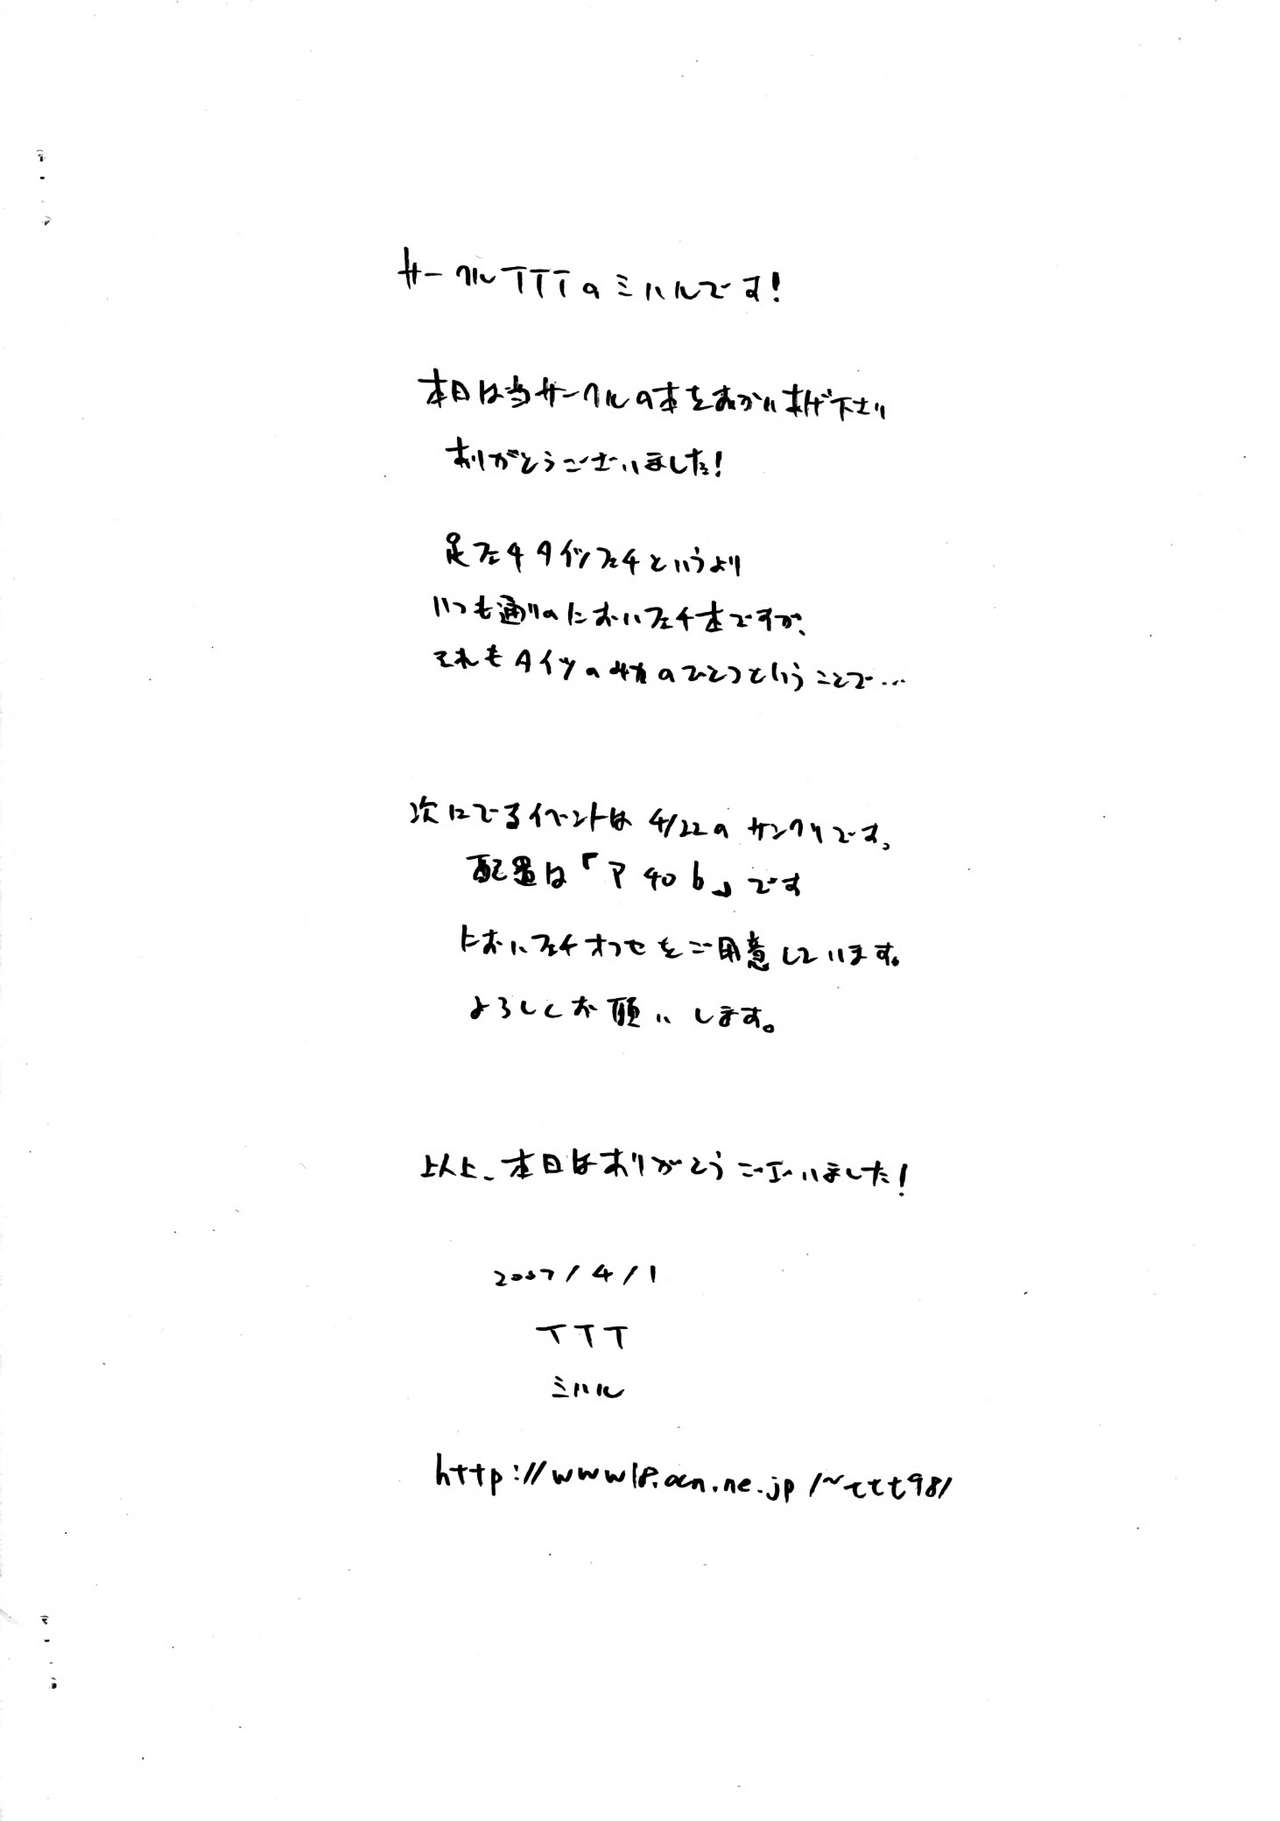 サークルTTTのミハルです!
本日は当サークルの本をおかいあげ下さり
ありがとうございました!
足フェチタイツフェチというより
いつも通りのにおいフェチ本ですが、
それもタイツの味のひとつということで…
次にでるイベントは4/22のサンクリです。
配置は「ア40b」です
においフェチオフセをご用意しています。
よろしくお願いします。
以上、本日はありがとうございました!
2007/4/1
TTT
ミハル
http://www18.ocn.ne.jp/~ttt98/